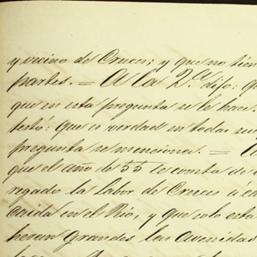 y vecino de Cruces; y que no tien
partes. = A la 2.ª dijo: qu
que en esta pregunta se le hace.
testó: Que es verdad en todas sus
pregunta se menciona. =
que el año de 55 le consta de
regado la labor de Cruces
en el Rio, y que solo esta
grandes las avenidas